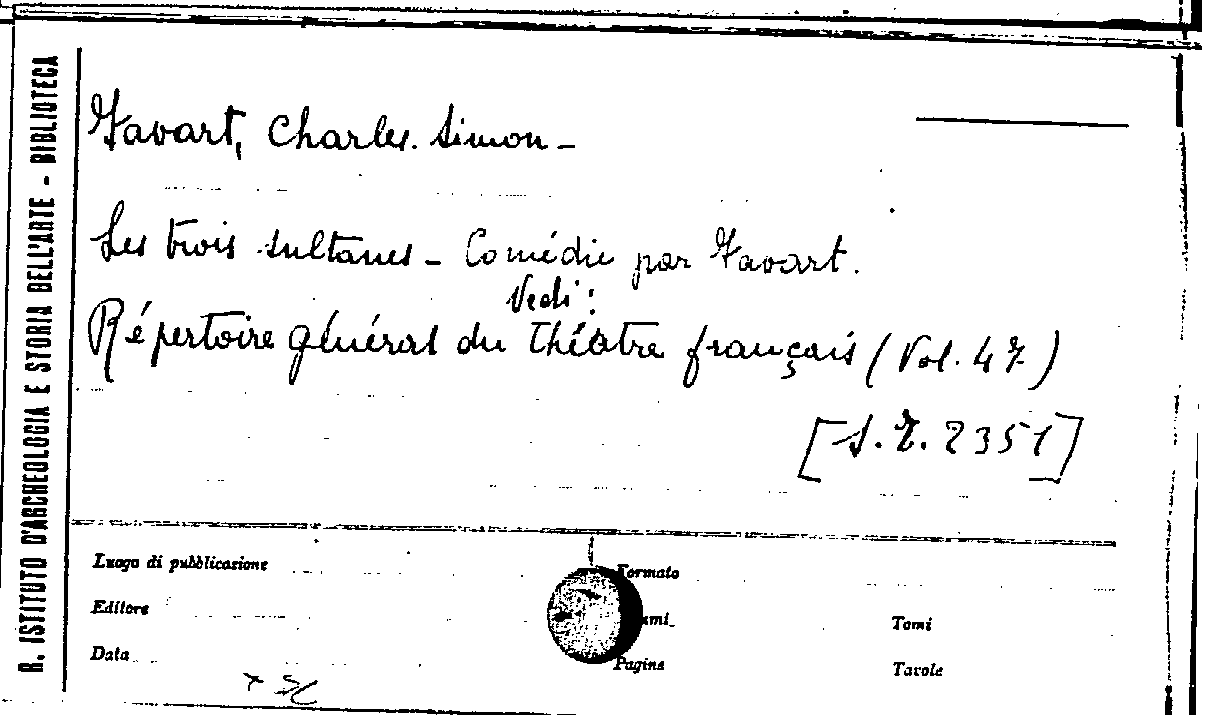 R. ISTITUTO D'ARCHEOLOGIA E STORIA DELL'ARTE - BIBLIOTECA
Favart, Charles Simon -
Les trois sultanes - Comédie par Favart.
Vedi:
Répertoire général du théatre français (Vol. 47)
[S.T. 2351]
Luogo di pubblicazione
Formato
Editore
Tomi
Data
Pagine
Tavole